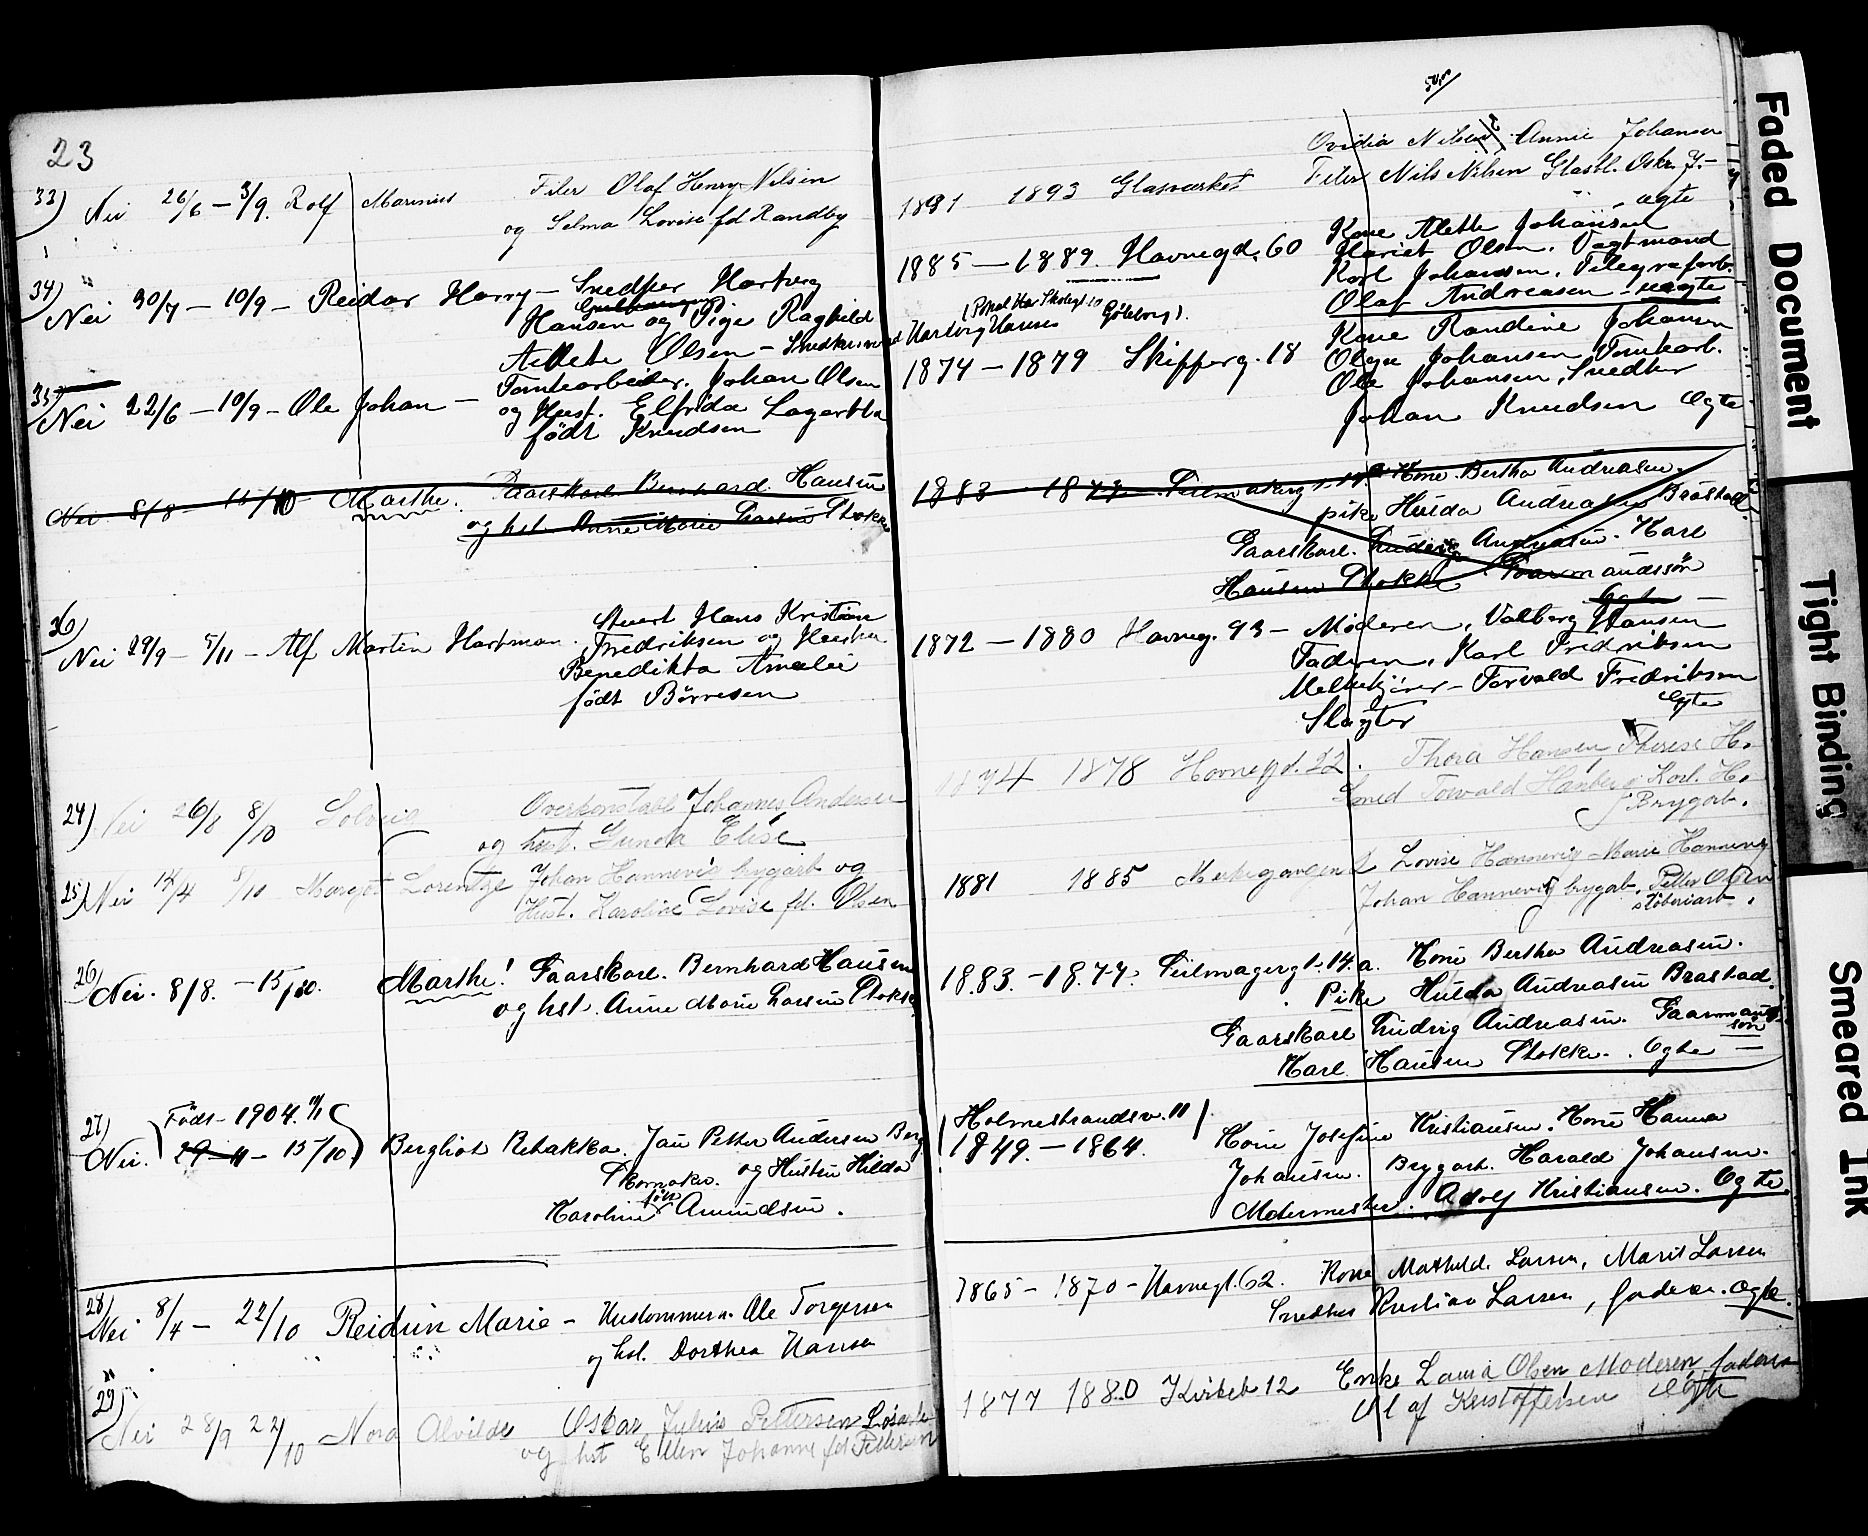 23
33) Nei 26/6 – 3/9. Rolf Marinius Filer Olaf Henry Nilsen
og Selma Lovise fd Randby
34) Nei 30/7 – 10/9 – Reidar Harry – Snedker Harberg
Hansen og Pige Raghild
Aelleta Olsen – Snedker
35) Nei 22/6 – 10/9 – Ole Johan – Tomtearbeider. Johan Olsen
og Hust. Elfrida
født Knudsen
Nei 8/8 – 15/10 Marthe. Gaarskarl Bernhard Hansen
og hst. Anne Marie Larsen Stokke
36) Nei 29/9 – 5/11 – Alf Martin Hartman. Hans Kristian
Fredriksen og Hustru
Benedikta Amalie
født Børresen
24) Nei 26/8 8/10 Solveig Overkonstabl Johannes Andersen
og hust. Gunda Elise
25) Nei 14/4 8/10 Margot Lorentze Johan Hannevig brygarb og
Hust. Karoline Lovise fd. Olsen
26) Nei. 8/8. – 15/10. Marthe! Gaarskarl. Bernhard Hansen
og hst. Anne Marie Larsen Stokke
27) Født – 1904.
Nei. 29 – 11 – 15/10 Bergliot Rebakka. Jan Petter Andersen Berg
og Hustru Hilda
Karoline født Amundsen.
28) Nei 8/4 – 22/10 Reidun Marie – Ole Torgersen
og hst. Dorthea Hansen
29) Nei 28/9 22/10 Nora Alvilde Oskar Julius Pettersen
og hst Ellen Johanne fd Pettersen
Ovidia Nilsen, Annie Johansen
1891 1893 Glasværket Filer Nils Nilsen Glasbl. Oskr. J. –
ægte
1885 – 1889. Havnegd. 60 Kone Alette Johansen
Hariet Olsen. Vagtmand
Karl Johansen. Telegrafarb.
Olaf Andreasen – uægte
Harberg Hansen Gøteborg).
1874 – 1879 Skipperg. 18 Kone Randine Johansen
Olga Johansen Tomtearb.
Ole Johansen, Snedker
Johan Knudsen Ægte
1883 – 1877 Seilmagerg Kone Bertha Andreasen.
pike Hulda Andreasen Brastad.
Gaarskarl. Ludvig Andreasen. Karl
Hansen Stokke Gaarmandssøn
Ægte –
1872 – 1880 Havneg. 93 – Moderen, Valborg Hansen
Faderen. Karl Fredriksen
Melkekjører – Torvald Fredriksen
Slagter Ægte
1874 1878 Havnegd. 22. Thora Hansen, Therese H.
Smed Torvald Karl. H.
Brygarb.
1881 1885 Lovise Hannevig Marie Hannevig
Johan Hannevig brygarb. Petter Olsen
støberiarb.
1883. – 1877. Seilmagergt. 14. a. Kone Bertha Andreasen.
Pike Hulda Andreasen Brastad.
Gaarskarl Ludvig Andreasen. Gaarmandssøn
Karl Hansen Stokke. Ægte –
Holmestrandsv. 11
1849. – 1864. Kone Josefine Kristiansen. Kone Hanna
Johansen. Brygarb. Harald Johansen.
Adolf Kristiansen. Ægte.
1865 – 1870 – Havnegt. 62. Kone Mathild. Larsen, Marit Larsen
Snedker Kristian Larsen, faderen. Ægte.
1877 1880 Kirkeb. 12 Enke Laura Olsen Moderen faderen
Olaf Kristoffersen Ægte
Faded Document
Tight Binding
Smeared Ink